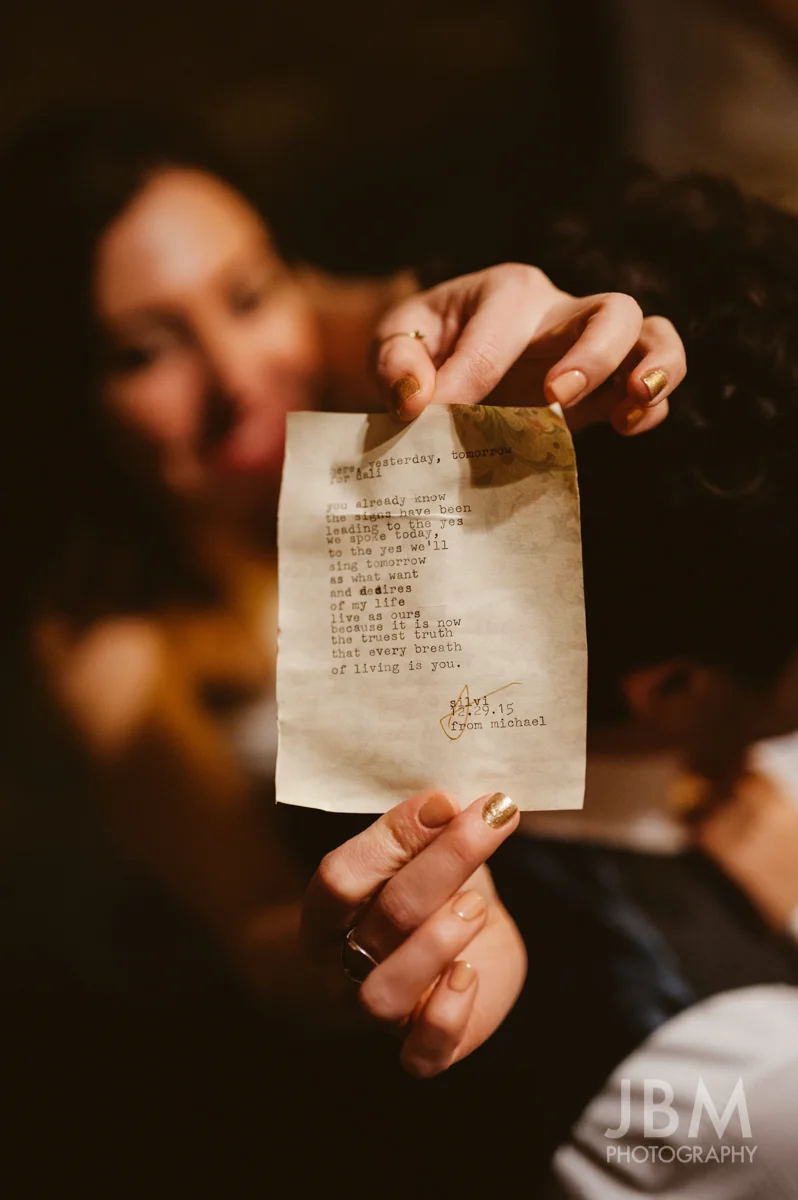 here, yesterday, tomorrow
for cali
you already know
the signs have been
leading to the yes
we spoke today,
to the yes we'll
sing tomorrow
as what want
and desires
of my life
live as ours
because it is now
the truest truth
that every breath
of living is you.
silvi
12.29.15
from michael
JBM
PHOTOGRAPHY